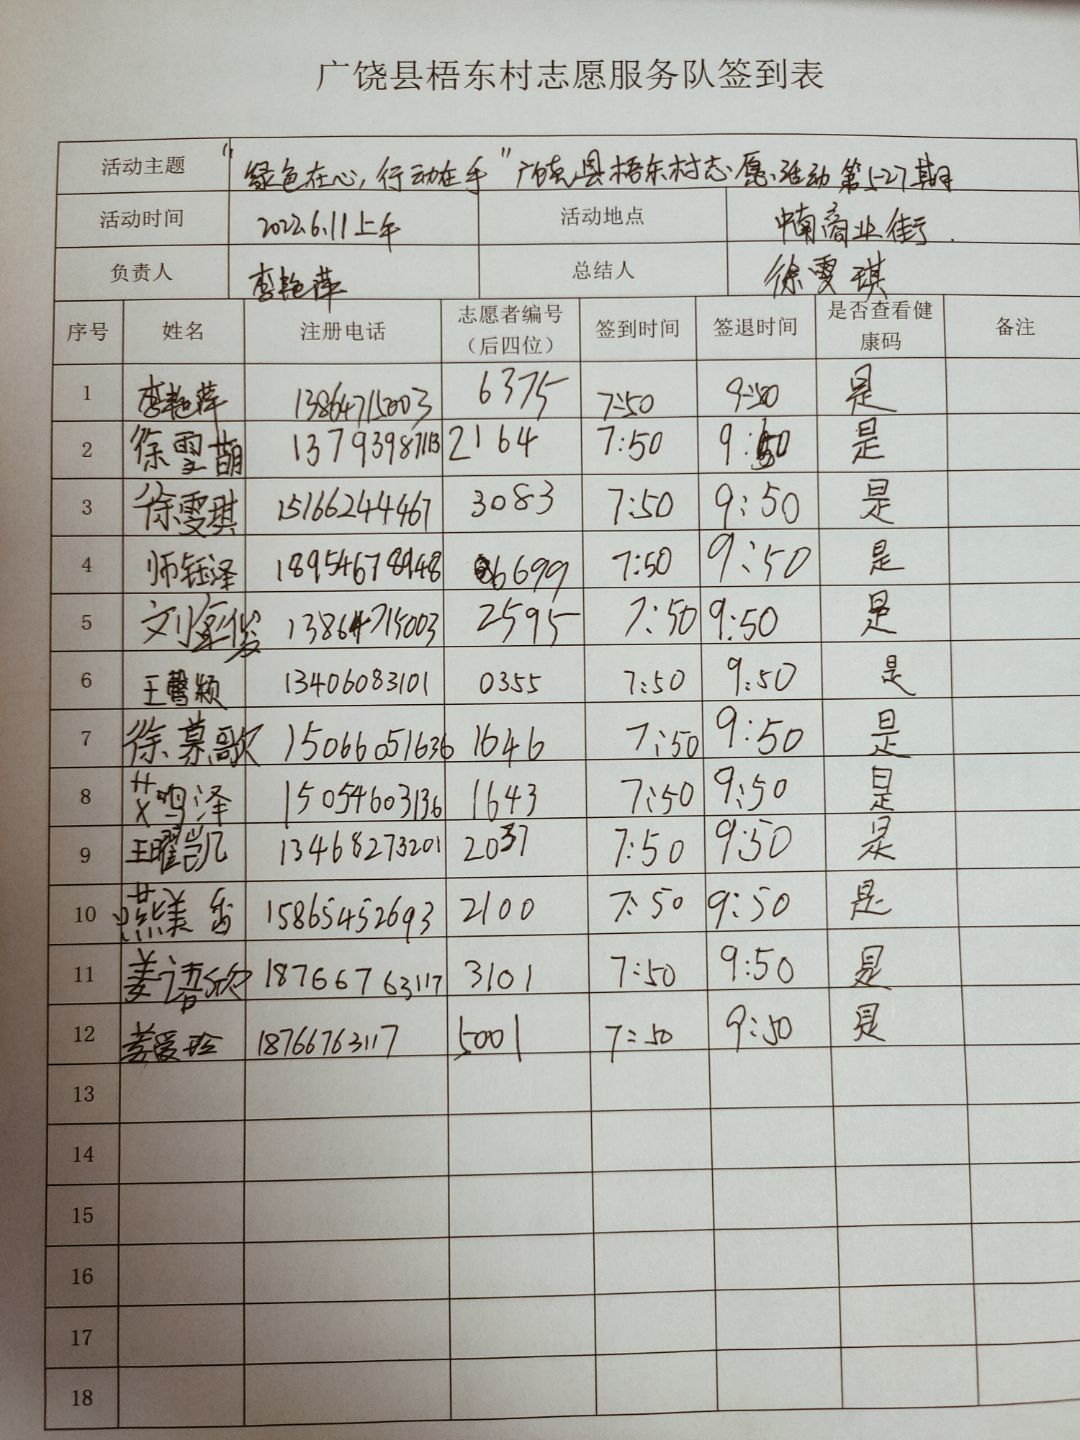 广饶县梧东村志愿服务队签到表
活动主题 "绿色在心,行动在手"广饶县梧东村志愿活动第527期
活动时间 2022.6.11上午 活动地点 中南商业街.
负责人 李艳萍 总结人 徐雯琪
序号 姓名 注册电话 志愿者编号(后四位) 签到时间 签退时间 是否查看健康码 备注
1 李艳萍 13864715003 6375 7:50 9:50 是
2 徐雯萌 13793987113 2164 7:50 9:50 是
3 徐雯琪 15166244467 3083 7:50 9:50 是
4 师钰泽 18954678948 6699 7:50 9:50 是
5 刘家俊 13864715003 2595 7:50 9:50 是
6 王馨颍 13406083101 0355 7:50 9:50 是
7 徐慕歌 15066051636 1646 7:50 9:50 是
8 艾鸣泽 15054603136 1643 7:50 9:50 是
9 王曜凯 13468273201 2037 7:50 9:50 是
10 燕美香 15865452693 2100 7:50 9:50 是
11 姜语欣 18766763117 3101 7:50 9:50 是
12 姜爱玲 18766763117 5001 7:50 9:50 是
13
14
15
16
17
18